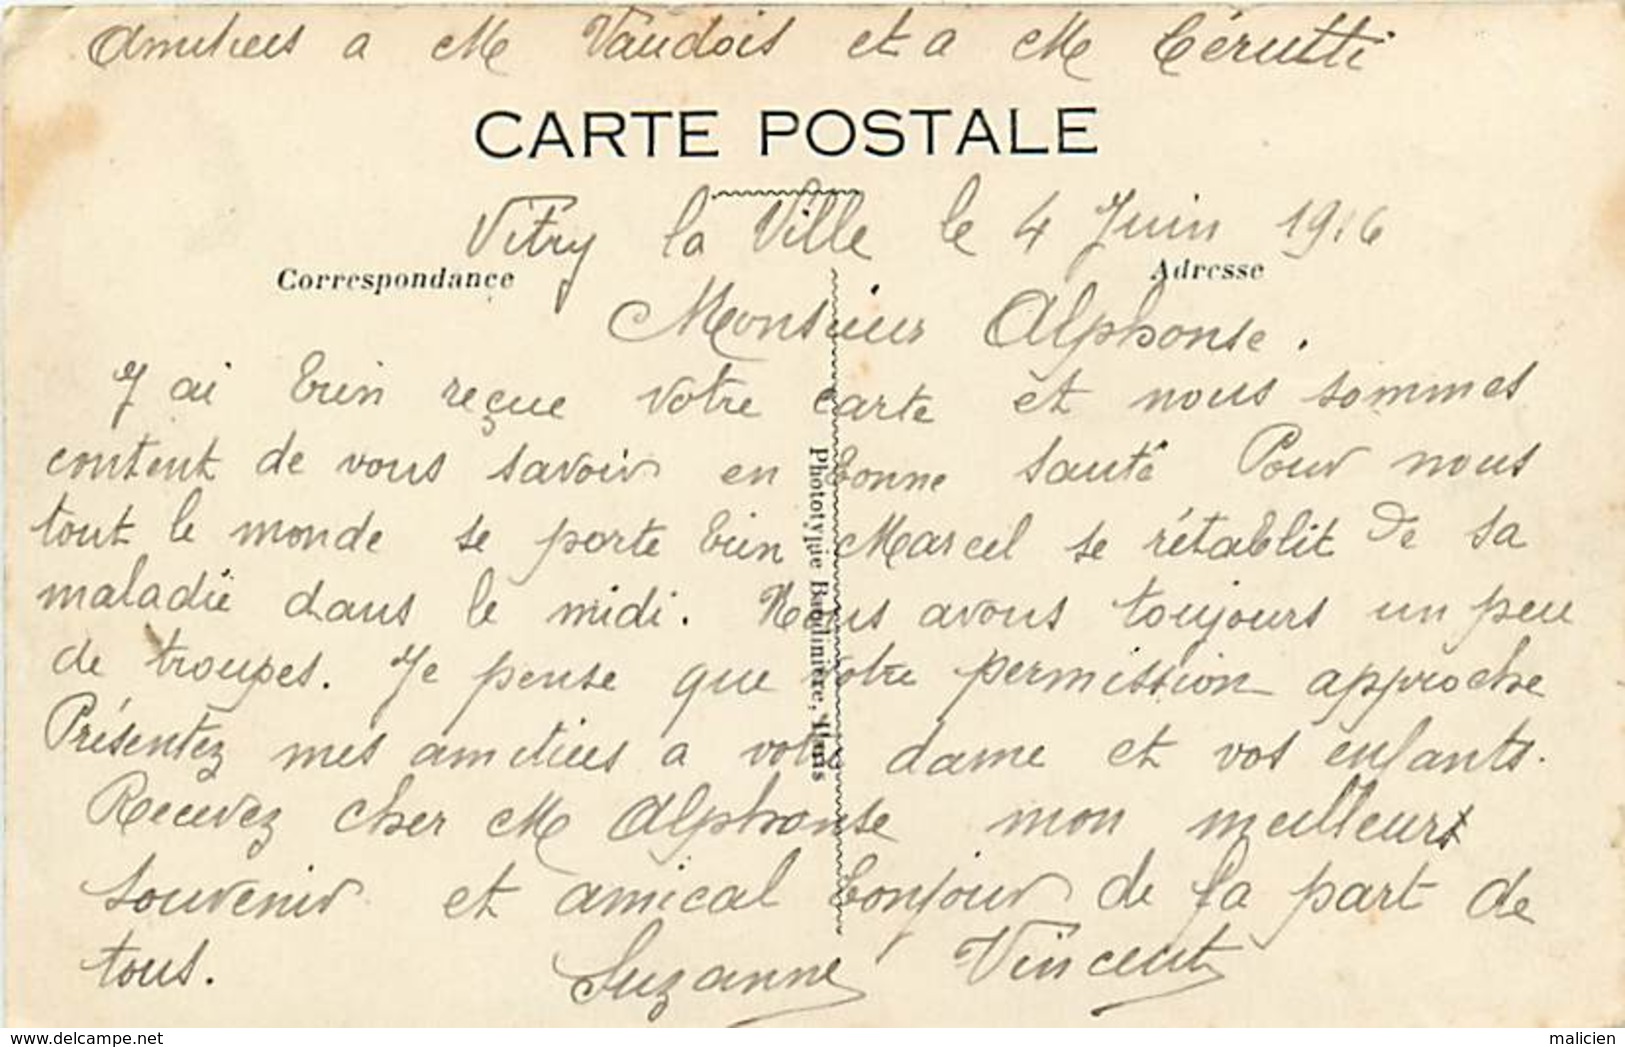 Amitiees a M Vaudois et a M Cérutti
CARTE POSTALE
Vitry la Ville le 4 Juin 1916
Correspondance
Adresse
Monsieur Alphonse.
J ai bien reçue votre carte et nous sommes
content de vous savoir en bonne santé Pour nous
tout le monde se porte bien Marcel se rétablit de sa
maladie dans le midi. Nous avons toujours un peu
de troupes. Je pense que votre permission approche
Présentez mes amitiées a votre dame et vos enfants.
Recevez cher M Alphonse mon meilleur
souvenir et amical bonjour de la part de
tous. Suzanne Vincent
Phototypie Baudinière, Paris
delcampe.net
malicien